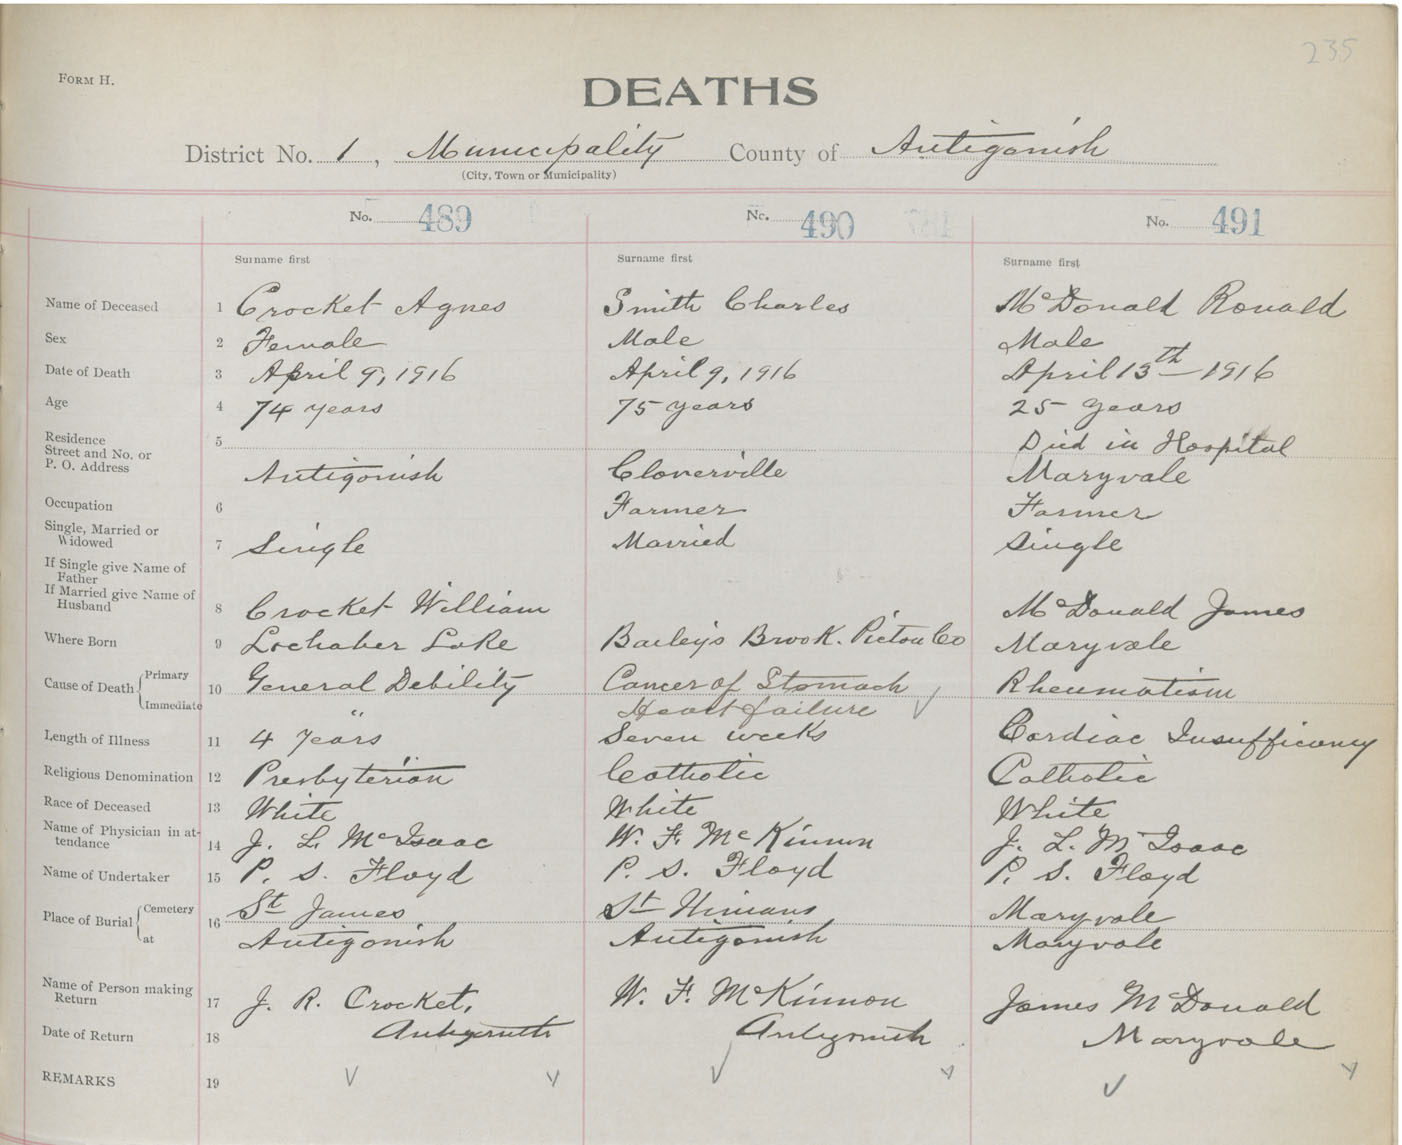 235
FORM H.
DEATHS
District No. 1, Municipality County of Antigonish
(City, Town or Municipality)
No. 489 No. 490 No. 491
Surname first Surname first Surname first
Name of Deceased 1 Crocket Agnes Smith Charles McDonald Ronald
Sex 2 Female Male Male
Date of Death 3 April 9, 1916 April 9, 1916 April 13th 1916
Age 4 74 years 75 years 25 years
Residence 5 Died in Hospital
Street and No. or
P. O. Address Antigonish Cloverville Maryvale
Occupation 6 Farmer Farmer
Single, Married or
Widowed 7 Single Married Single
If Single give Name of
Father
If Married give Name of
Husband 8 Crocket William McDonald James
Where Born 9 Lochaber Lake Bailey's Brook. Pictou Co Maryvale
Cause of Death { Primary 10 General Debility Cancer of Stomach Rheumatism
Immediate " Heart failure
Length of Illness 11 4 years Seven weeks Cardiac Insufficiency
Religious Denomination 12 Presbyterian Catholic Catholic
Race of Deceased 13 White White White
Name of Physician in at-
tendance 14 J. L. McIsaac W. F. McKinnon J. L. McIsaac
Name of Undertaker 15 P. S. Floyd P. S. Floyd P. S. Floyd
Place of Burial { Cemetery 16 St James St Ninians Maryvale
at Antigonish Antigonish Maryvale
Name of Person making
Return 17 J. R. Crocket, W. F. McKinnon James McDonald
Date of Return 18 Antigonish Antigonish Maryvale
REMARKS 19